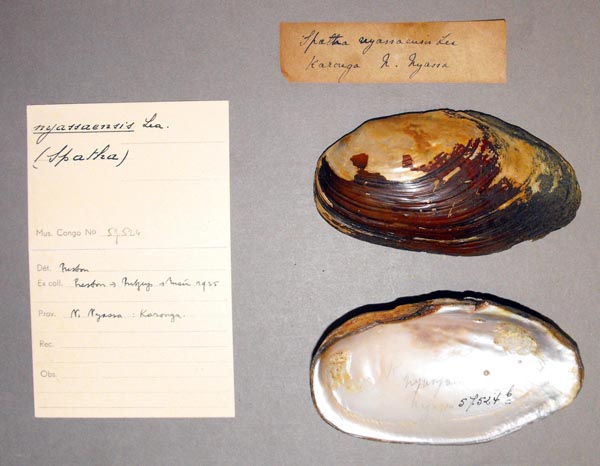 Spatha nyassaensis Lea
Karonga N. Nyassa
nyassaensis Lea.
(Spatha)
Mus. Congo No 57.524
Dét. Preston
Ex coll. Preston → → 1935
Prov. N. Nyassa : Karonga.
Rec.
Obs.
57.524 b